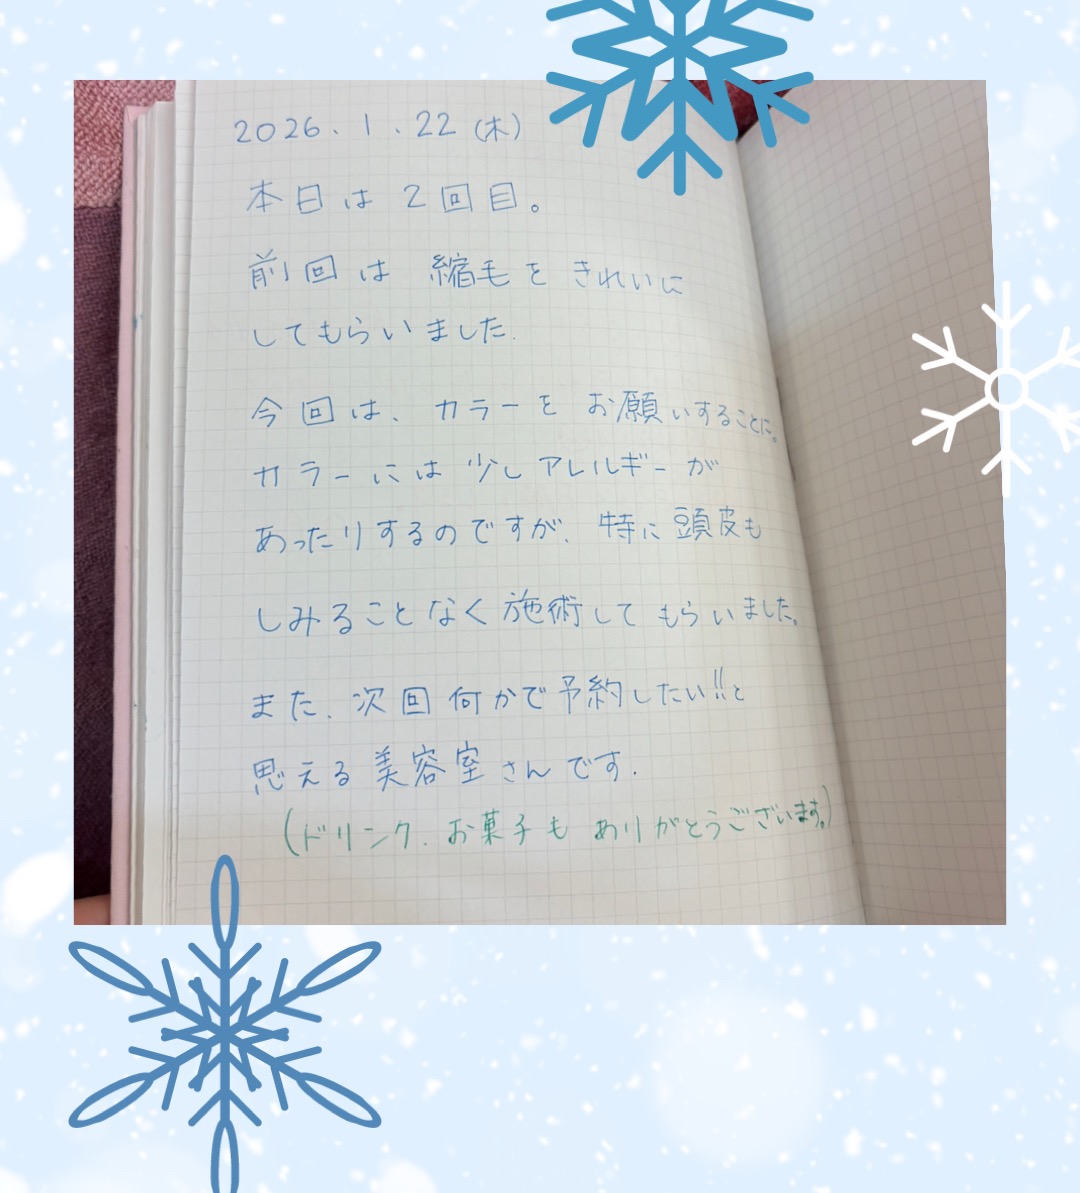 2026.1.22(木)
本日は2回目。
前回は 縮毛を きれいに
してもらいました.
今回は、カラーを お願いすることに。
カラーには 少し アレルギーが
あったりするのですが、特に 頭皮も
しみることなく 施術して もらいました。
また、次回 何かで 予約したい!!と
思える 美容室さんです.
(ドリンク、お菓子も ありがとうございます。)